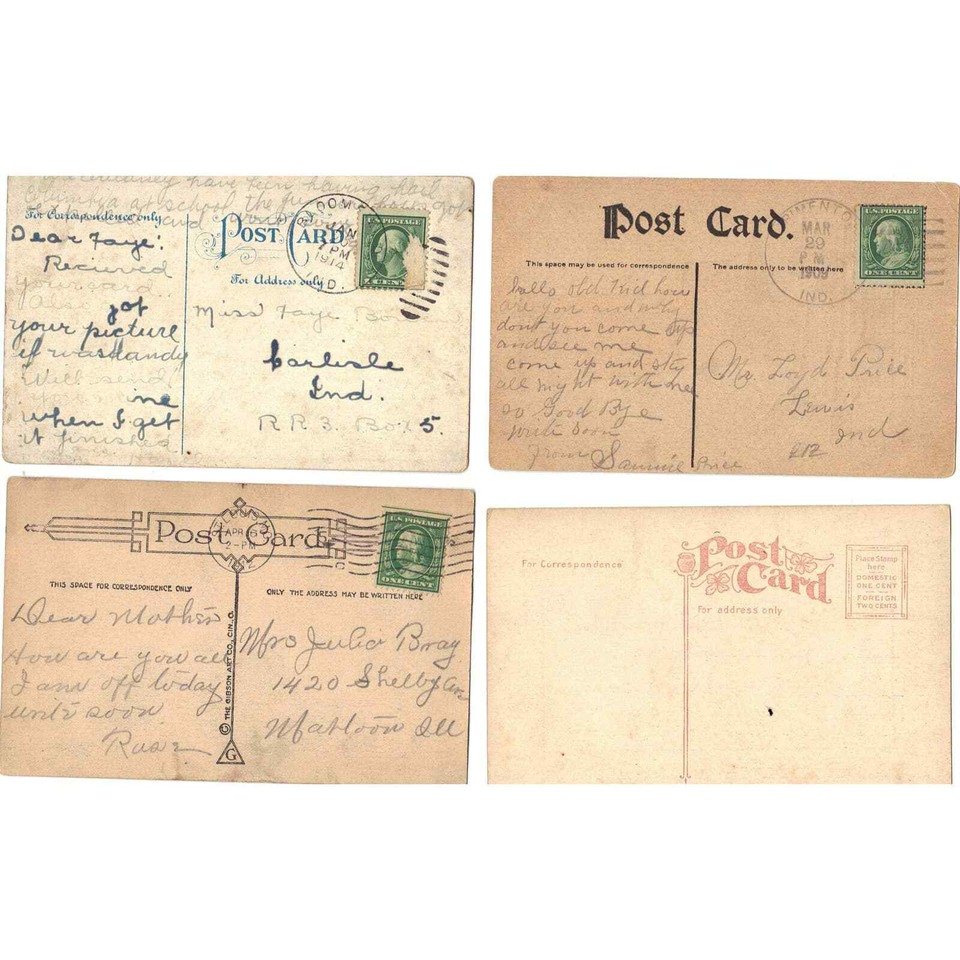 have been having
at school the
For Correspondence only
POST CARD
For Address only
Dear Faye:
Recieved
your card
got
your picture
if was handy
Will send
me
when I get
it finished
JAN
1 PM
1914
IND.
U.S. POSTAGE
1 CENT
Miss Faye
Carlisle
Ind.
R R 3. Box 5.
Post Card.
MAR
29
P M
1909
IND.
U.S. POSTAGE
ONE CENT
This space may be used for correspondence
The address only to be written here
hello old kid how
are you and why
dont you come up
and see me
come up and stay
all night with me
so Good Bye
write soon
from Sammie Price
Mr Loyd Price
Lewis
Ind
Post Card
APR 6
2-PM
U.S. POSTAGE
ONE CENT
THIS SPACE FOR CORRESPONDENCE ONLY
ONLY THE ADDRESS MAY BE WRITTEN HERE
Dear Mother
How are you all
I am off today
write soon
Rose
© THE GIBSON ART CO., CIN., O.
G
Mrs Julia Bray
1420 Shelby Ave
Mattoon Ill
For Correspondence
Post
Card
For address only
Place Stamp
here
DOMESTIC
ONE CENT
FOREIGN
TWO CENTS